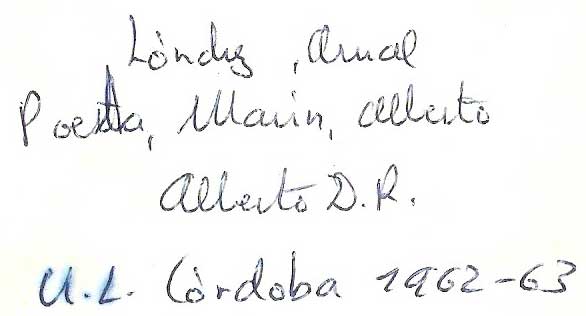 Lóndiz, Arual
Poesta, Marin, Alberto
Alberto D.R.
U.L. Córdoba 1962-63